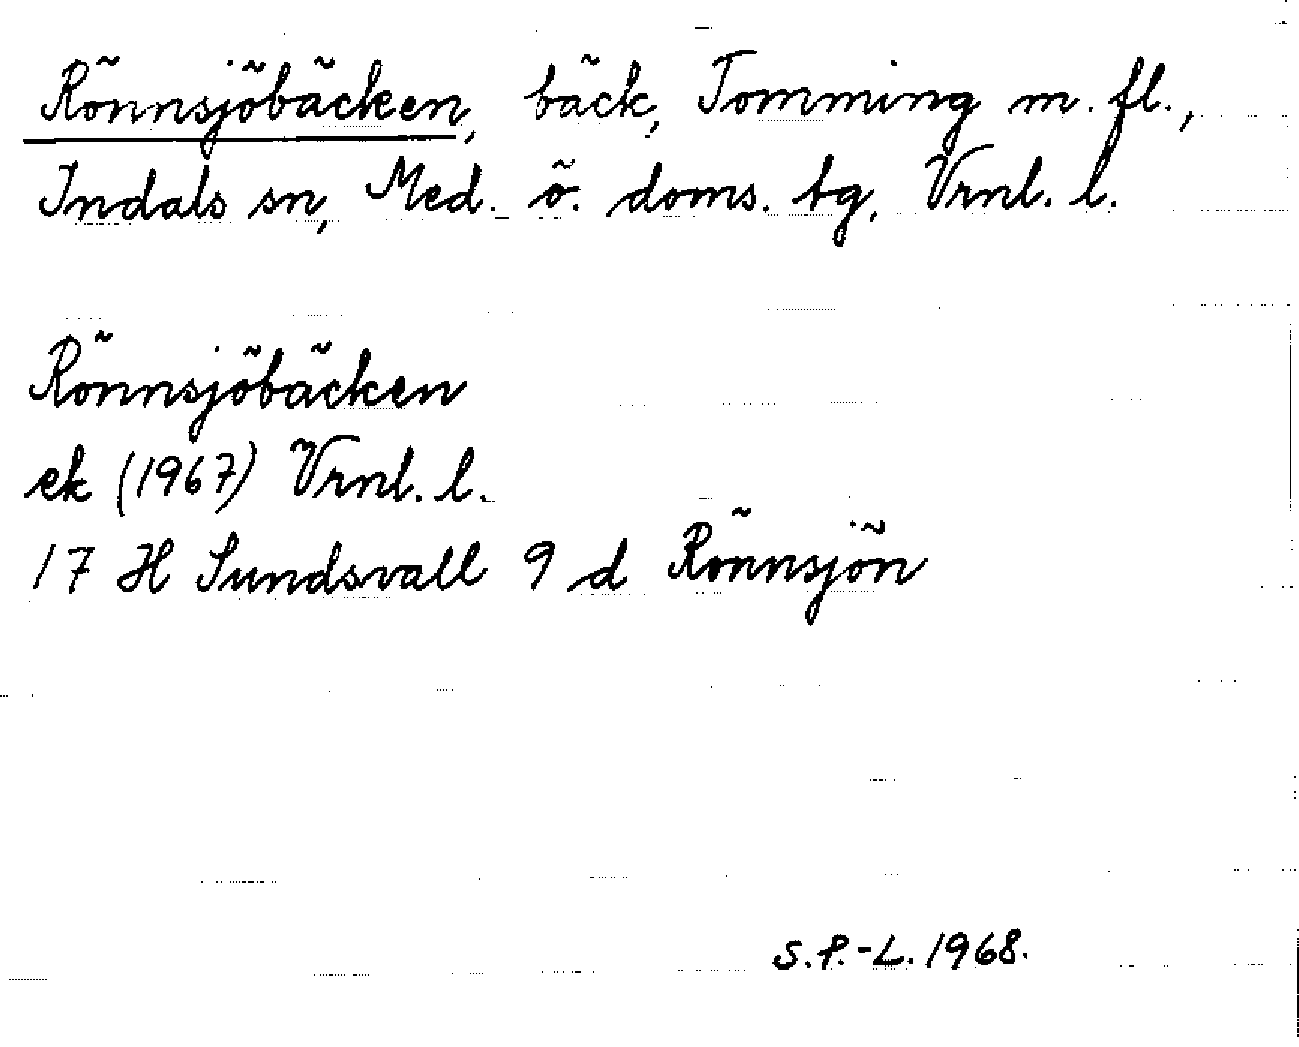 Rönnsjöbäcken, bäck, Tomming m. fl.,
Indals sn, Med. ö. doms. tg, Vrnl. l.
Rönnsjöbäcken
ek (1967) Vrnl. l.
17 H Sundsvall 9 d Rönnsjön
S.P.-L. 1968.